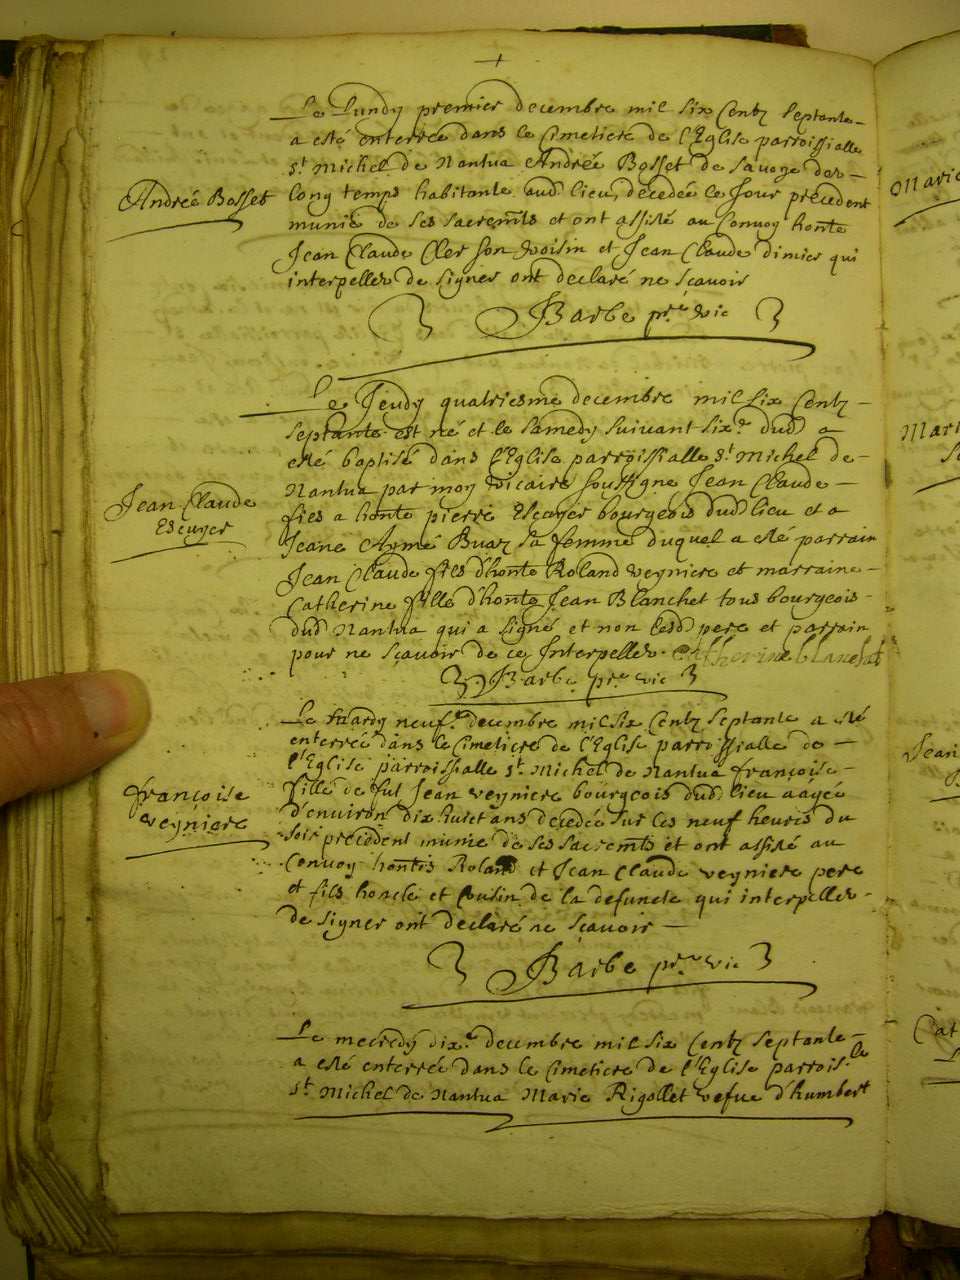 +
Le Lundy premier decembre mil six Centz septante
a esté enterrée dans le Cimetiere de l'Eglise parroissialle
st Michel de Nantua Andréé Bosset de Savoye dar-
André Bosset
long temps habitante aud lieu, decedée le Jour precedent
munie de ses sacremts et ont assisté au Convoy honte
Jean Claude Cler son voisin et Jean Claude dimier qui
interpellez de signer ont declaré ne scavoir
Barbe pre vic
Le Jeudy quatriesme decembre mil six Centz
septante est né et le samedy suivant sixe dud a
esté baptisé dans l'Eglise parroissialle st Michel de
Nantua par moy vicaire soussigne Jean Claude
Jean Claude
Escuyer
fils a honte pierre Escuyer bourgeois dud lieu et a
Jeane Aymé sa femme duquel a esté parrain
Jean Claude fils d'honte Roland veyniere et marraine
Catherine fille d'honte Jean Blanchet tous bourgeois
dud Nantua qui a signé et non lesd pere et parrain
pour ne scavoir de ce Interpellez. Catherine blanchet
Barbe pre vic
Le Mardy neufe decembre mil six Centz septante a esté
enterréé dans le Cimetiere de l'Eglise parroissialle de
l'Eglise parroissialle st Michel de Nantua françoise
françoise
veyniere
fille de fut Jean veyniere bourgeois dud lieu aagée
d'environ dix huict ans decedée sur les neuf heures du
soir precedent munie de ses sacremts et ont assisté au
Convoy hontes Roland et Jean Claude veyniere pere
et fils honcle et Cousin de la defuncte qui interpellez
de signer ont declaré ne scavoir
Barbe pre vic
Le mecredy dixe decembre mil six Centz septante
a esté enterrée dans le Cimetiere de l'Eglise parroisle
st Michel de Nantua Marie Rigollet vefue d'humbert